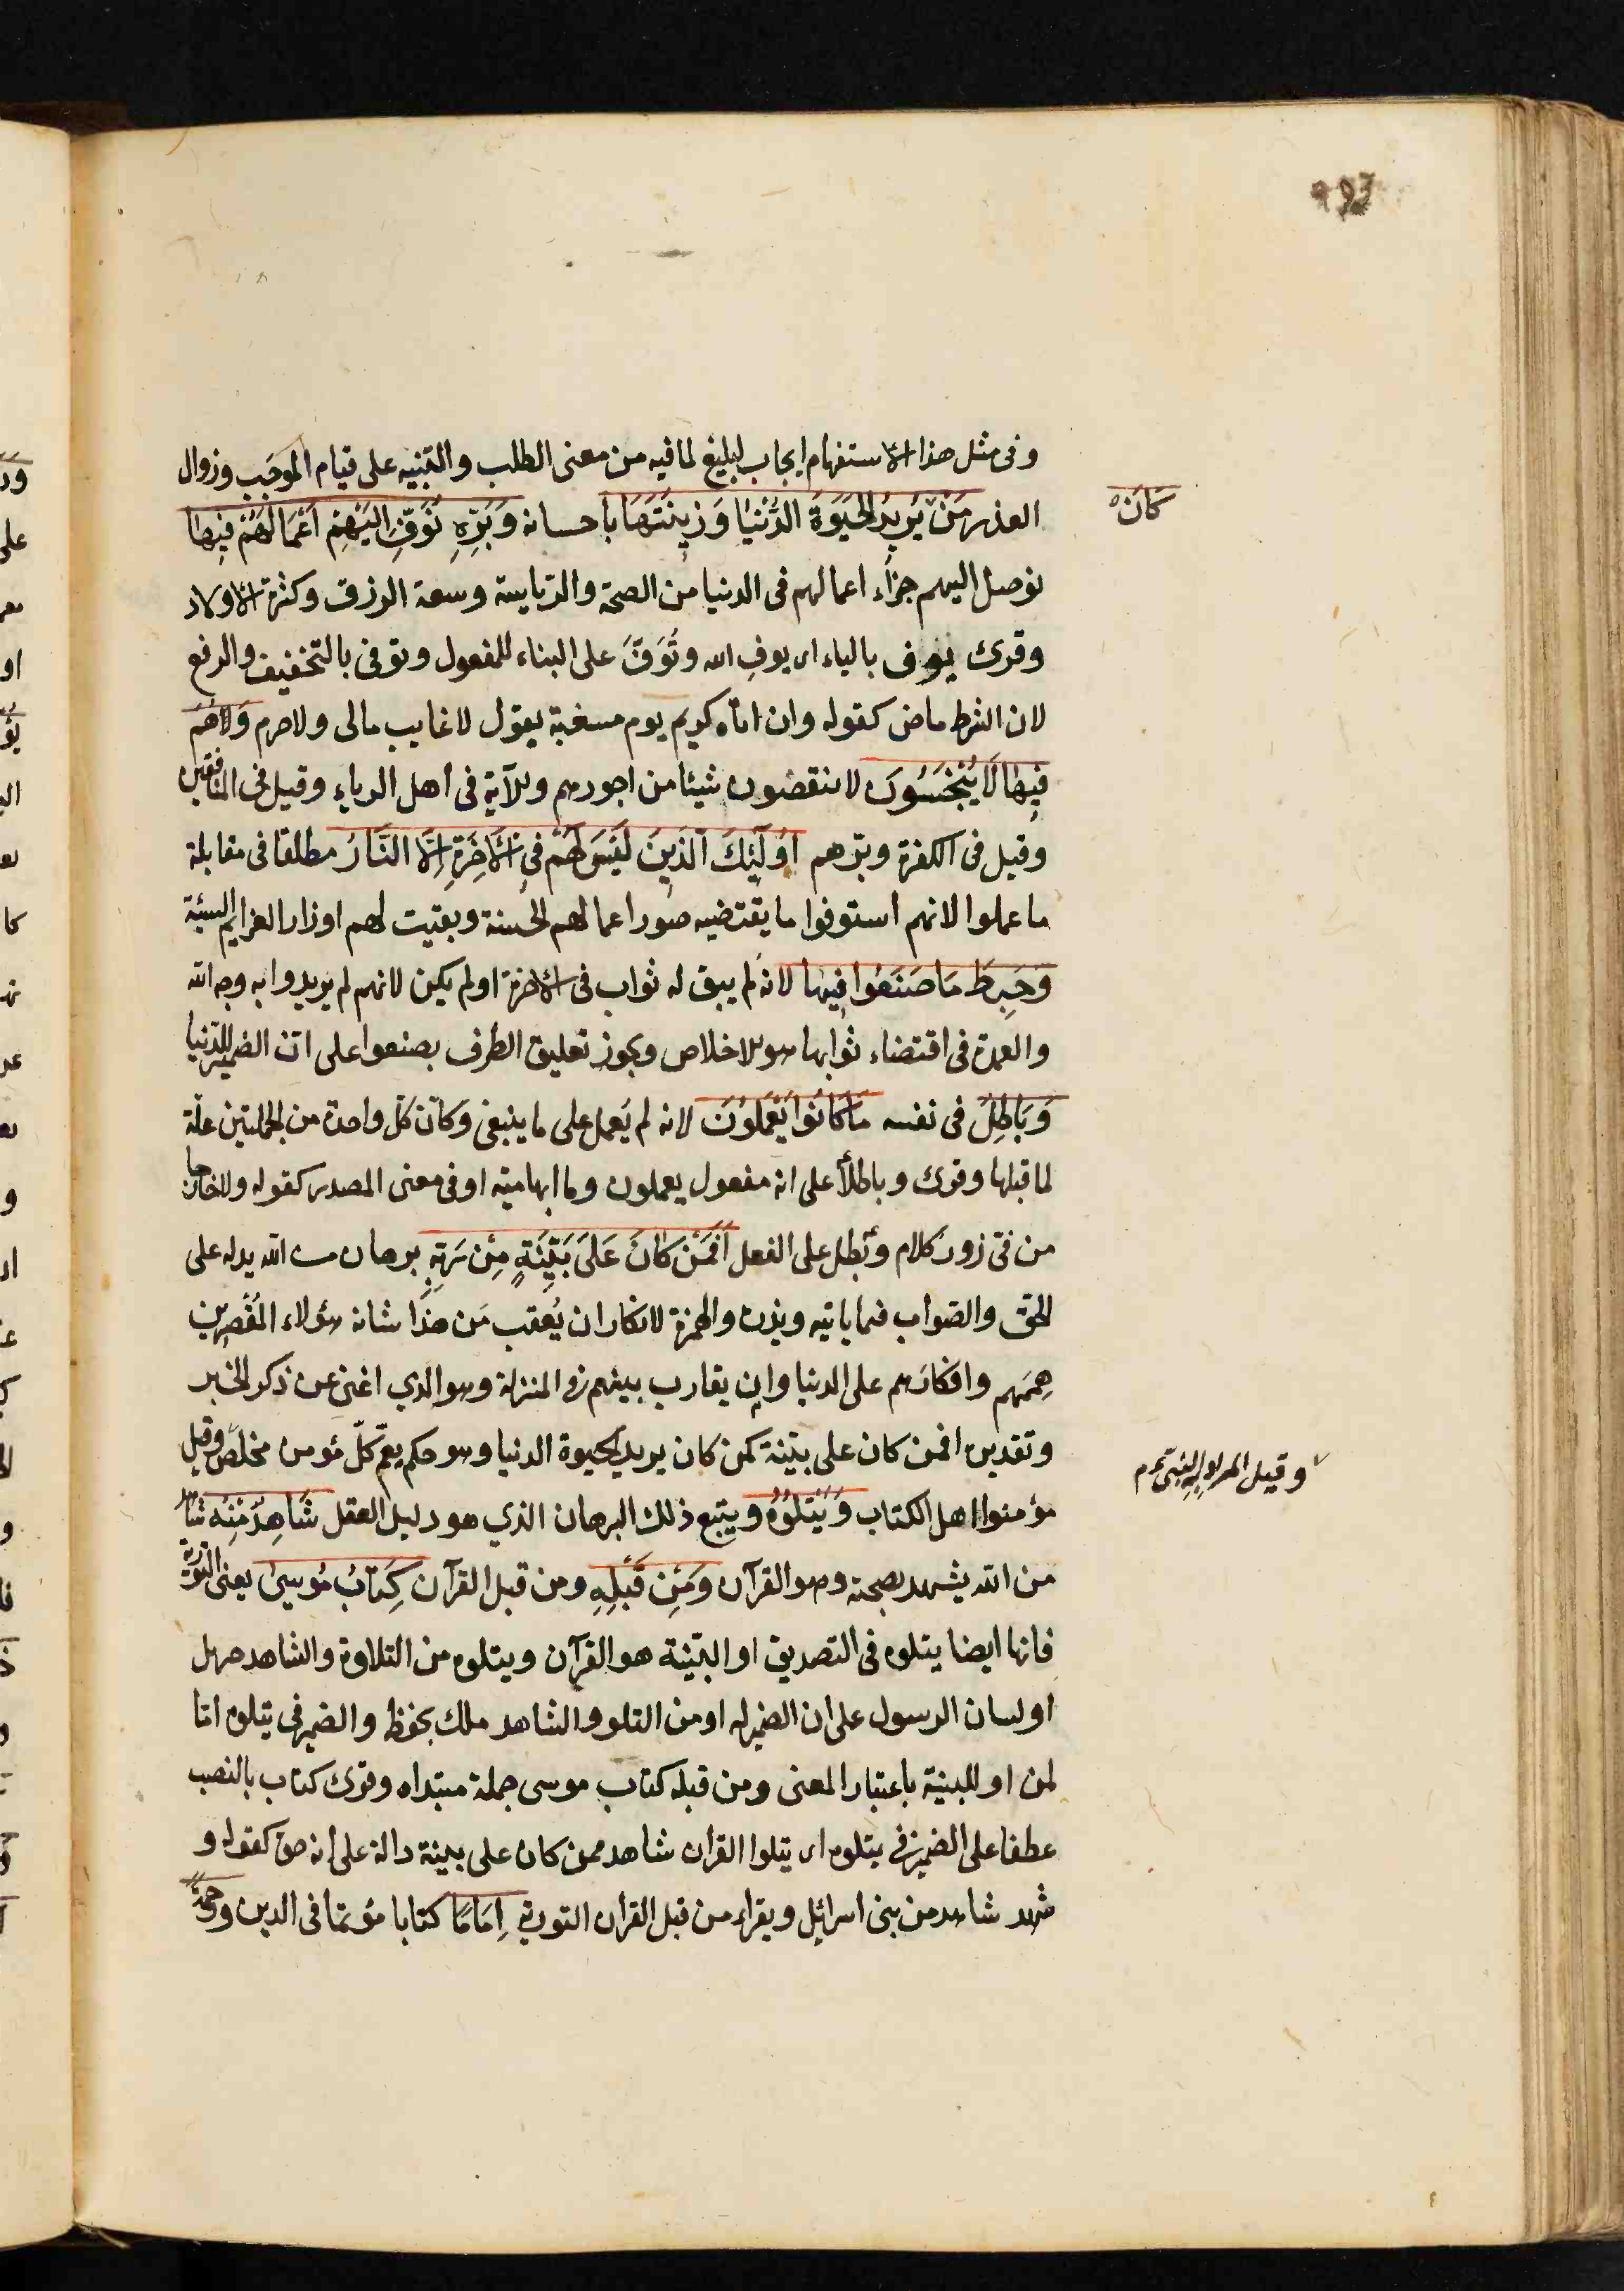 وفى مثل هذا الاستفهام ايجاب لبليغ لما فيه من معنى الطلب والتنبيه على قيام الموجب وزوال
العذر مَنْ يُرِيدُ الحَيَوةَ الدُّنْيَا وَزِينَتَهَا باحسانه وَبِرِّهِ نُوَفِّ اِلَيْهِمْ اَعْمَالَهُمْ فِيهَا
كَانَ
نوصل اليهم جزاء اعمالهم فى الدنيا من الصحة والرياسة وسعة الرزق وكثرة الاولاد
وقرئ يوف بالياء اى يوفِ الله وتُوَفَّ على البناء للمفعول ونوفى بالتخفيف والرفع
لان الشرط ماض كقوله وان اتاه كريم يوم مسغبة يقول لا غايب مالى ولا حرم وَلَاهُمْ
فِيهَا لَا يُبْخَسُونَ لا ينقصون شيئا من اجورهم والآية فى اهل الرياء وقيل فى المنافقين
وقيل فى الكفرة وبرّهم اُولَئِكَ الَّذِينَ لَيْسَ لَهُمْ فِي الْاخِرَةِ اِلَّا النَّارُ مطلقا فى مقابلة
ما عملوا لانهم استوفوا ما يقتضيه صور اعمالهم الحسنة وبقيت لهم اوزار العزايم السيئة
وَحَبِطَ مَا صَنَعُوا فِيهَا لانه لم يبق له ثواب فى الاخرة او لم يكن لانهم لم يريدوا به وجه الله
والعمدة فى اقتضاء ثوابها هو الاخلاص ويجوز تعليق الظرف بصنعوا على انّ الضمير للدّنيا
وَبَاطِلٌ فى نفسه مَا كَانُوا يَعْمَلُونَ لانه لم يَعمل على ما ينبغى وكأنّ كلّ واحدة من الجملتين علّة
لما قبلها وقرئ وباطلاً على انه مفعول يعملون وما ابهامية او فى معنى المصدر كقوله ولا خارجا
من فىّ زور كلام وبَطَلَ على الفعل اَفَمَنْ كَانَ عَلَى بَيِّنَةٍ مِنْ رَبِّهِ برهان من الله يدله على
الحق والصّواب فيما ياتيه ويذره والهمزة لانكار ان يُعقب مَن هذا شانه هؤلاء المقصرين
هِمَمَهم وافكارهم على الدنيا وان يقارب بينهم فى المنزلة وهو الذي اغنى عن ذكر الخبر
وتقديره افمن كان على بيّنة كمن كان يريد الحيوة الدنيا وهو حكم يعمّ كلّ مؤمن مخلص وقيل
وقيل المراد به النبى ع م
مؤمنوا اهل الكتاب وَيَتْلُوهُ ويتبع ذلك البرهان الذي هو دليل العقل شَاهِدٌ مِنْهُ شاهد
من الله يشهد بصحته وهو القرآن وَمِنْ قَبْلِهِ ومن قبل القرآن كِتَابُ مُوسَى يعنى التورية
فانها ايضا يتلوه فى التصديق او البيّنة هو القرآن ويتلوه من التلاوة والشاهد جبرئل
او لسان الرسول على ان الضمير له او من التلو والشاهد ملك يحفظه والضمير فى يتلوه امّا
لمن او للبينة باعتبار المعنى ومن قبله كتاب موسى جملة مبتداه وقرئ كتاب بالنصب
عطفا على الضمير فى يتلوه اى يتلوا القران شاهد ممن كان على بينة دالة على انه حق كقوله و
شهد شاهد من بنى اسرائل ويقراء من قبل القران التورية اِمَامًا كتابا مؤتما فى الدين ورحمة